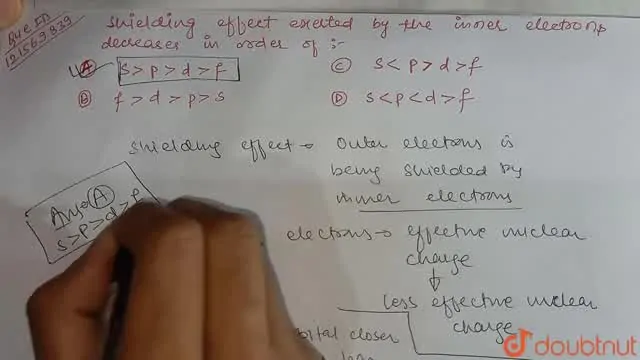 Que ID
121569829
Shielding effect exerted by the inner electrons
decreases in order of :-
(A) s > p > d > f
(C) s < p > d > f
(B) f > d > p > s
(D) s < p < d > f
Shielding effect → outer electrons is
being shielded by
inner electrons
Ans (A)
s > p > d > f
electrons → effective nuclear
charge
less effective nuclear
charge
closer
doubtnut